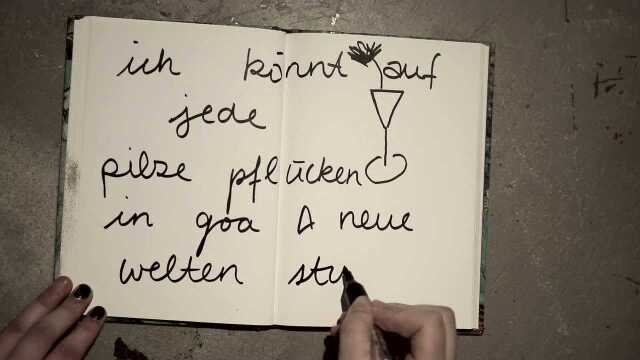 ich könnt auf
jede
pilze pflücken
in goa neue
welten stu